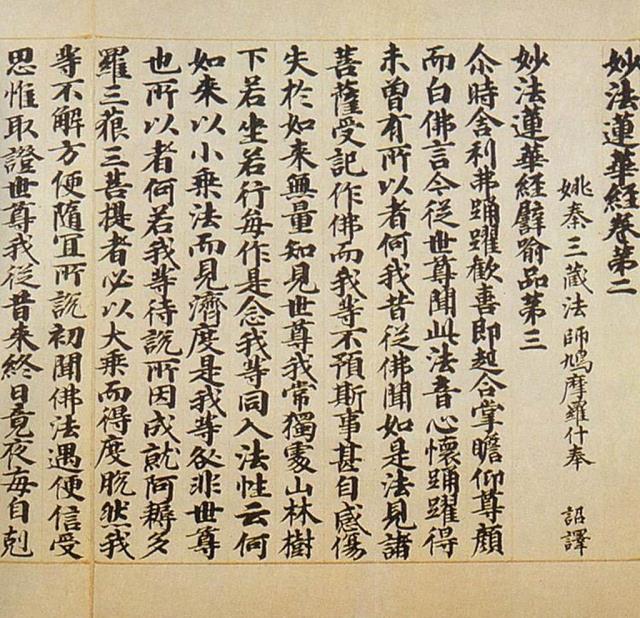 妙法蓮華経卷第二
姚秦三藏法師鳩摩羅什奉 詔譯
妙法蓮華経譬喻品第三
尒時舎利弗踊躍歓喜即起合掌瞻仰尊顔
而白佛言今從世尊聞此法音心懐踊躍得
未曽有所以者何我昔從佛聞如是法見諸
菩薩受記作佛而我等不預斯事甚自感傷
失於如来無量知見世尊我常獨處山林樹
下若坐若行毎作是念我等同入法性云何
如来以小乗法而見濟度是我等咎非世尊
也所以者何若我等待説所因成就阿耨多
羅三藐三菩提者必以大乗而得度脱然我
等不解方便随冝所説初聞佛法遇便信受
思惟取證世尊我從昔来終日竟夜毎自剋